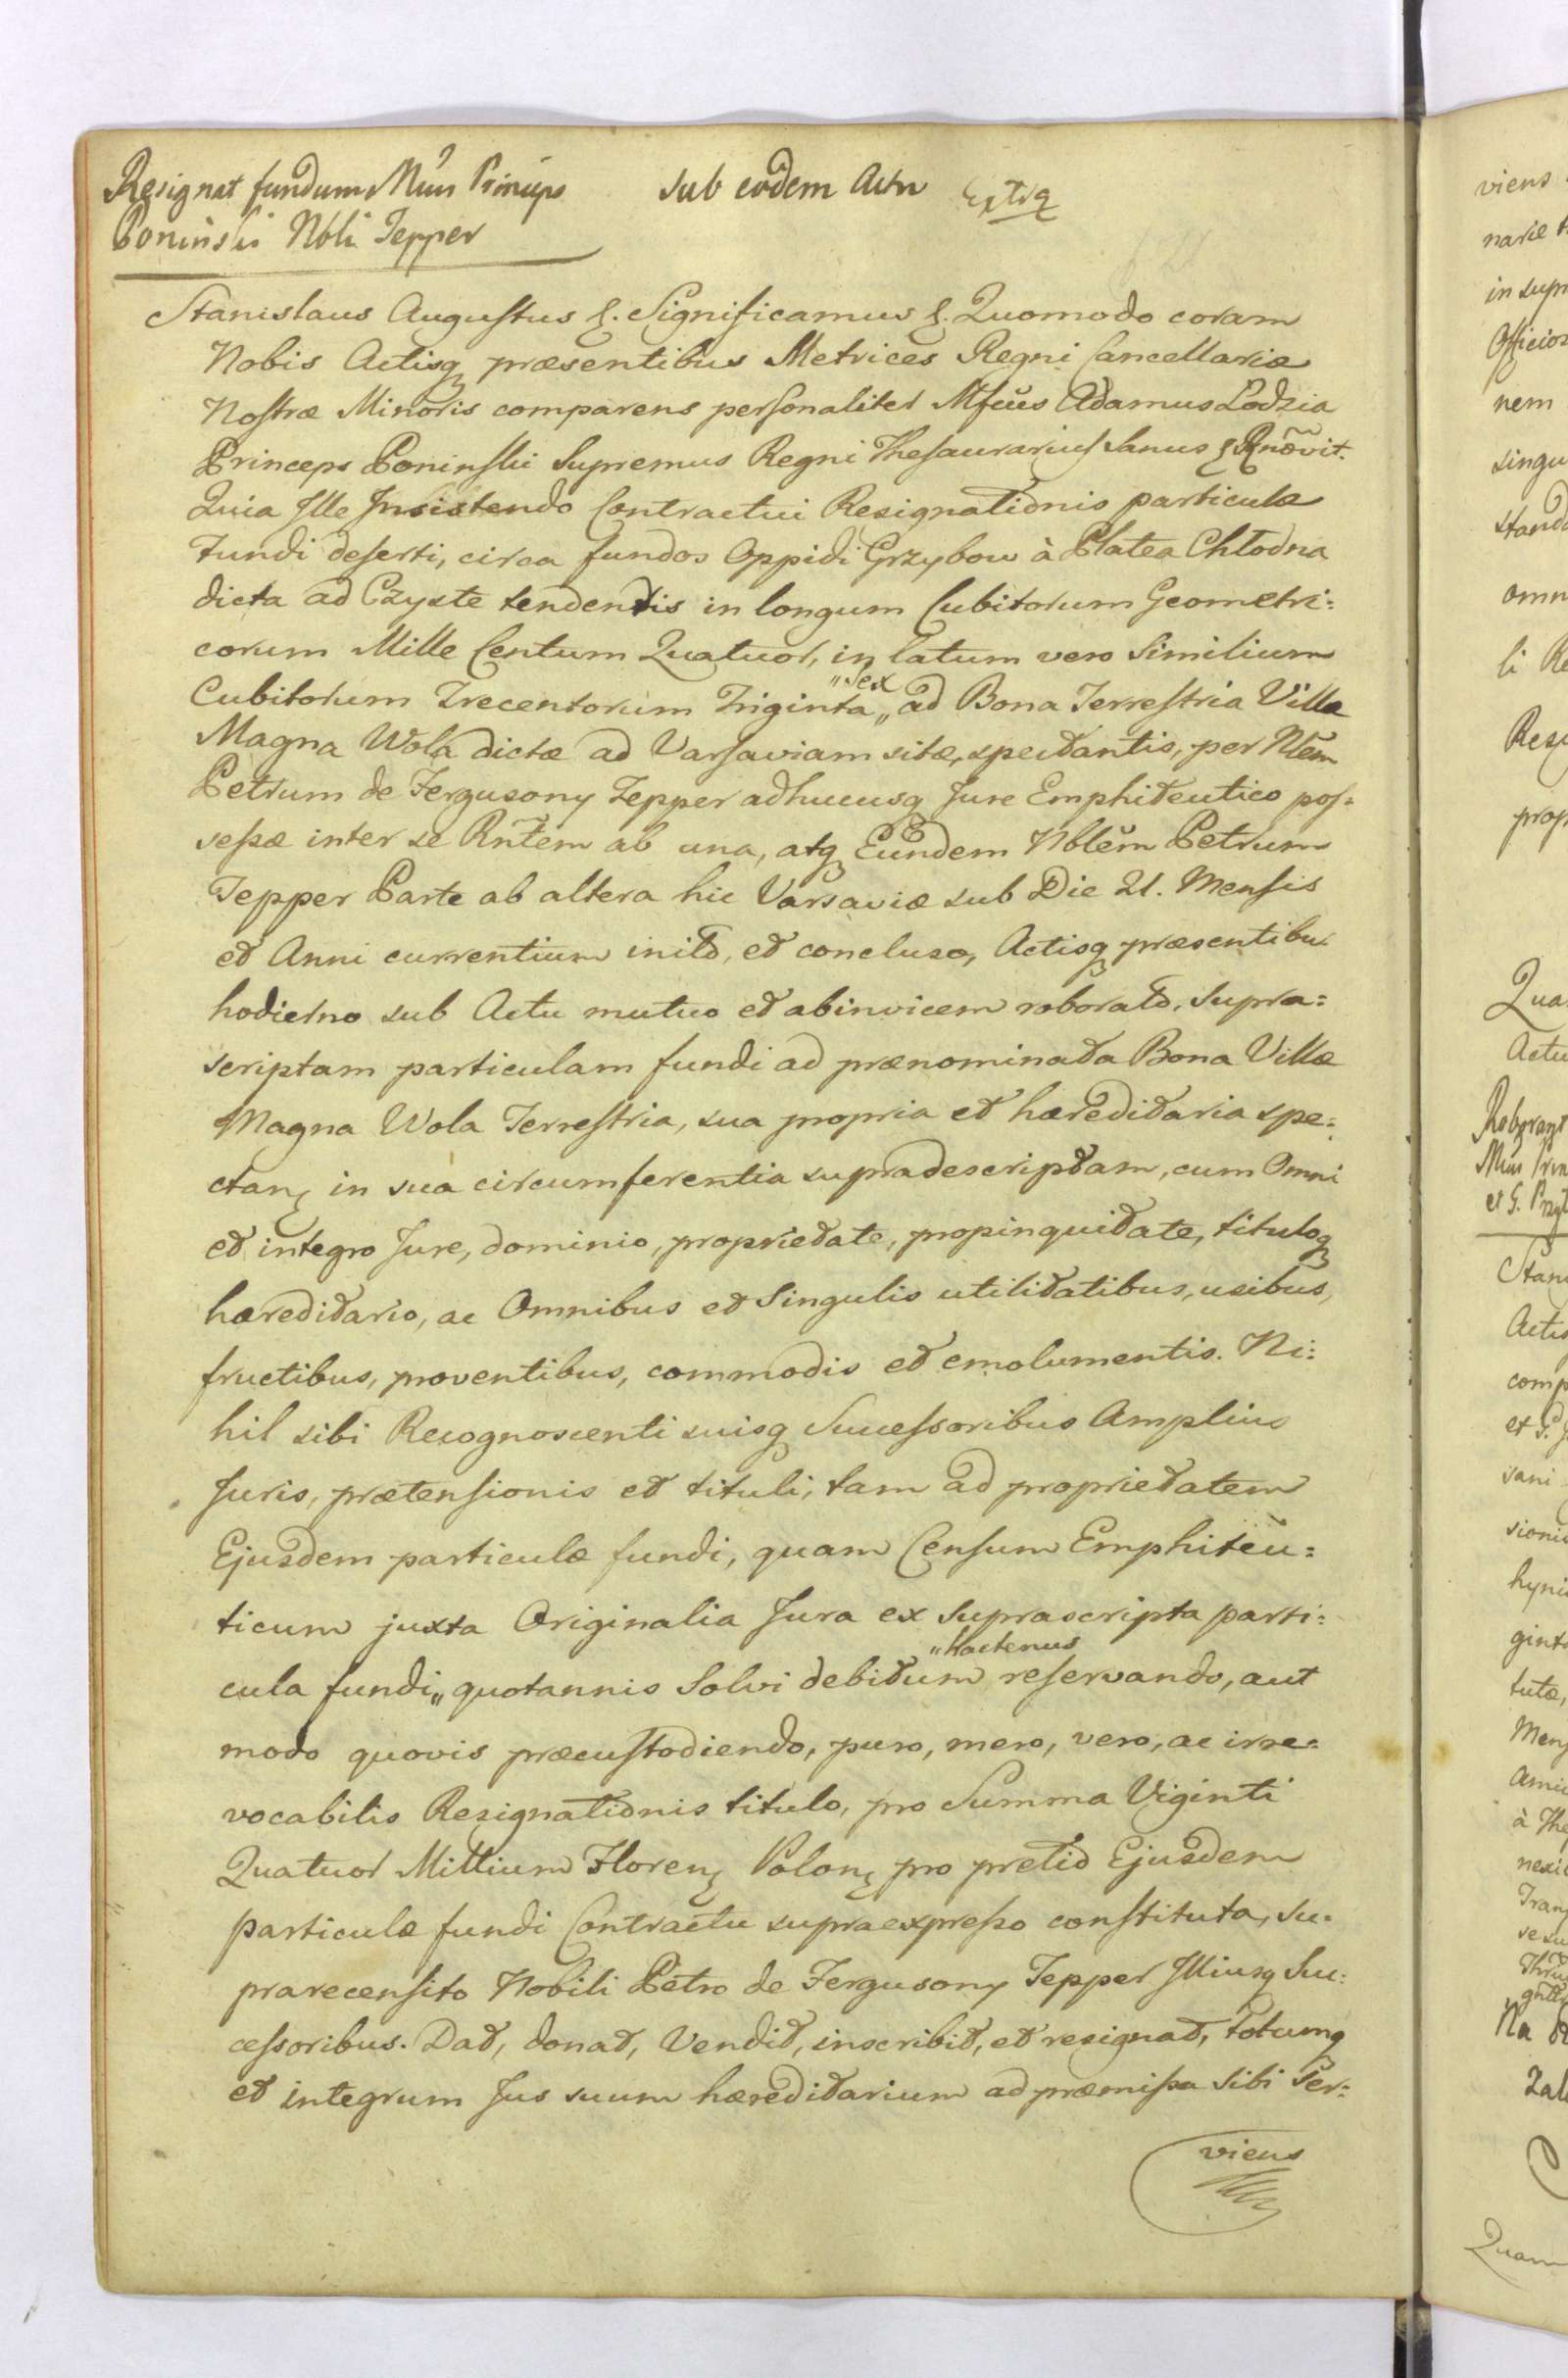 Resignat fundum Mcus Princeps
Poninski Nbli Tepper
sub eodem Actu
Extrq
Stanislaus Augustus &. Significamus &. Quomodo coram
Nobis Actisq præsentibus Metrices Regni Cancellariæ
Nostræ Minoris comparens personaliter Mfcus Adamus Lodzia
Princeps Poninski Supremus Regni Thesaurarius sanus & Rnovit.
Quia Ille Insistendo Contractui Resignationis particulæ
Fundi deserti, circa fundos Oppidi Grzybow à Platea Chłodna
dicta ad Czyste tendentis in longum Cubitorum Geometri:
corum Mille Centum Quatuor, in latum vero Similium
Cubitorum Trecentorum Triginta „ "sex ad Bona Terrestria Villæ
Magna Wola dictæ ad Varsaviam sitæ, spectantis, per Nlem
Petrum de Fergusony Tepper adhucusq Jure Emphiteutico pos:
sessæ inter se Rntem ab una, atq Eundem Nblem Petrum
Tepper Parte ab altera hic Varsaviæ sub Die 21. Mensis
et Anni currentium inito, et concluso, Actisq præsentibu.
hodierno sub Actu mutuo et abinvicem roborato. Supra:
scriptam particulam fundi ad prænominata Bona Villæ
Magna Wola Terrestria, sua propria et hæreditaria spe:
ctan, in sua circumferentia supradescriptam, cum Omni
et integro Jure, dominio, proprietate, propinquitate, tituloq
hæreditario, ac Omnibus et Singulis utilitatibus, usibus,
fructibus, proventibus, commodis et emolumentis. Ni:
hil sibi Recognoscenti suisq Successoribus Amplius
Juris, prætensionis et tituli, tam ad proprietatem
Ejusdem particulæ fundi, quam Censum Emphiteu:
ticum juxta Originalia Jura ex suprascripta parti:
"hactenus
cula fundi „ quotannis Solvi debitum reservando, aut
modo quovis præcustodiendo, puro, mero, vero, ac irre:
vocabilis Resignationis titulo, pro Summa Viginti
Quatuor Millium Floren, Polon, pro pretio Ejusdem
particulæ fundi Contractu supraexpresso constituta, su:
prarecensito Nobili Petro de Fergusony Tepper Illiusq Suc:
cessoribus. Dat, donat, Vendit, inscribit, et resignat, Totumq
et integrum Jus suum hæreditarium ad præmissa sibi Ser:
viens
viens
narie
in supr
Officios
nem
singu
omn
li Re
prop
Qua
Actu
Roborant
et G.
Stani
Actis
comp
et G.
sani
sionis
hyni
gint
tutæ,
Men
Ami
à The
nexi
Tran
Na
Zal
Quam